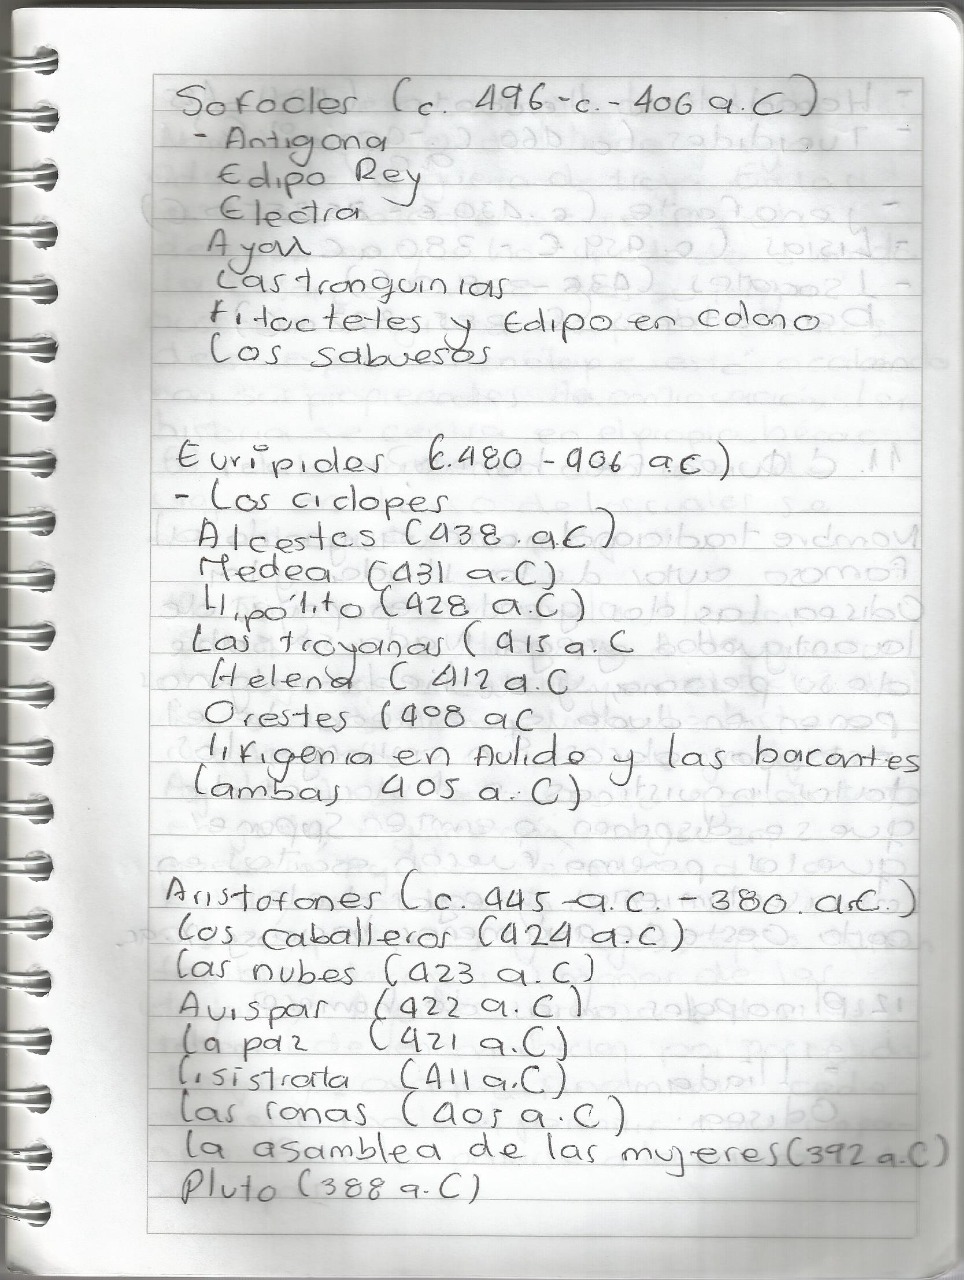 Sofocles (c. 496-c.-406 a.C)
- Antigona
Edipo Rey
Electra
Ayax
Las tranquinias
Filocteles y Edipo en Colono
Los sabuesos
Eurípides (c.480-406 a.C)
- Los ciclopes
Alcestes (438.a.C)
Medea (431 a.C)
Hipólito (428 a.C)
Las troyanas (415 a.C
Helena (412 a.C
Orestes (408 aC
Iifigenia en Aulide y las bacantes
(ambas 405 a.C)
Aristofanes (c. 445-a.c.-380.a.C.)
Los caballeros (424 a.C)
Las nubes (423 a.C)
Avispas (422 a.C)
La paz (421 a.C)
Lisistrata (411 a.C)
Las ranas (405 a.C)
La asamblea de las mujeres (392 a.C)
Pluto (388 a.C)